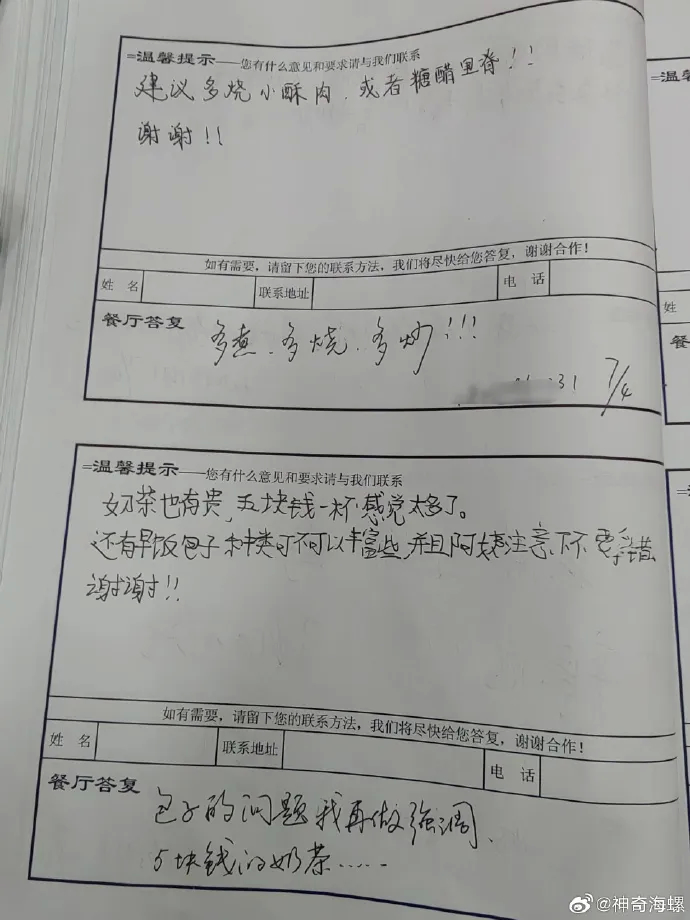 =温馨提示——您有什么意见和要求请与我们联系
建议多烧小酥肉、或者糖醋里脊!!
谢谢!!
如有需要，请留下您的联系方法，我们将尽快给您答复，谢谢合作!
姓 名 联系地址 电 话
餐厅答复
多煮、多烧、多炒!!!
31 7/4
=温馨提示——您有什么意见和要求请与我们联系
奶茶也有贵，五块钱一杯感觉太多了。
还有早饭包子种类可不可以丰富些，并且阿姨注意下不要拿错
谢谢!!
如有需要，请留下您的联系方法，我们将尽快给您答复，谢谢合作!
姓 名 联系地址 电 话
餐厅答复
包子的问题我再做强调、
5块钱的奶茶……
=温
姓
餐
=温
@神奇海螺